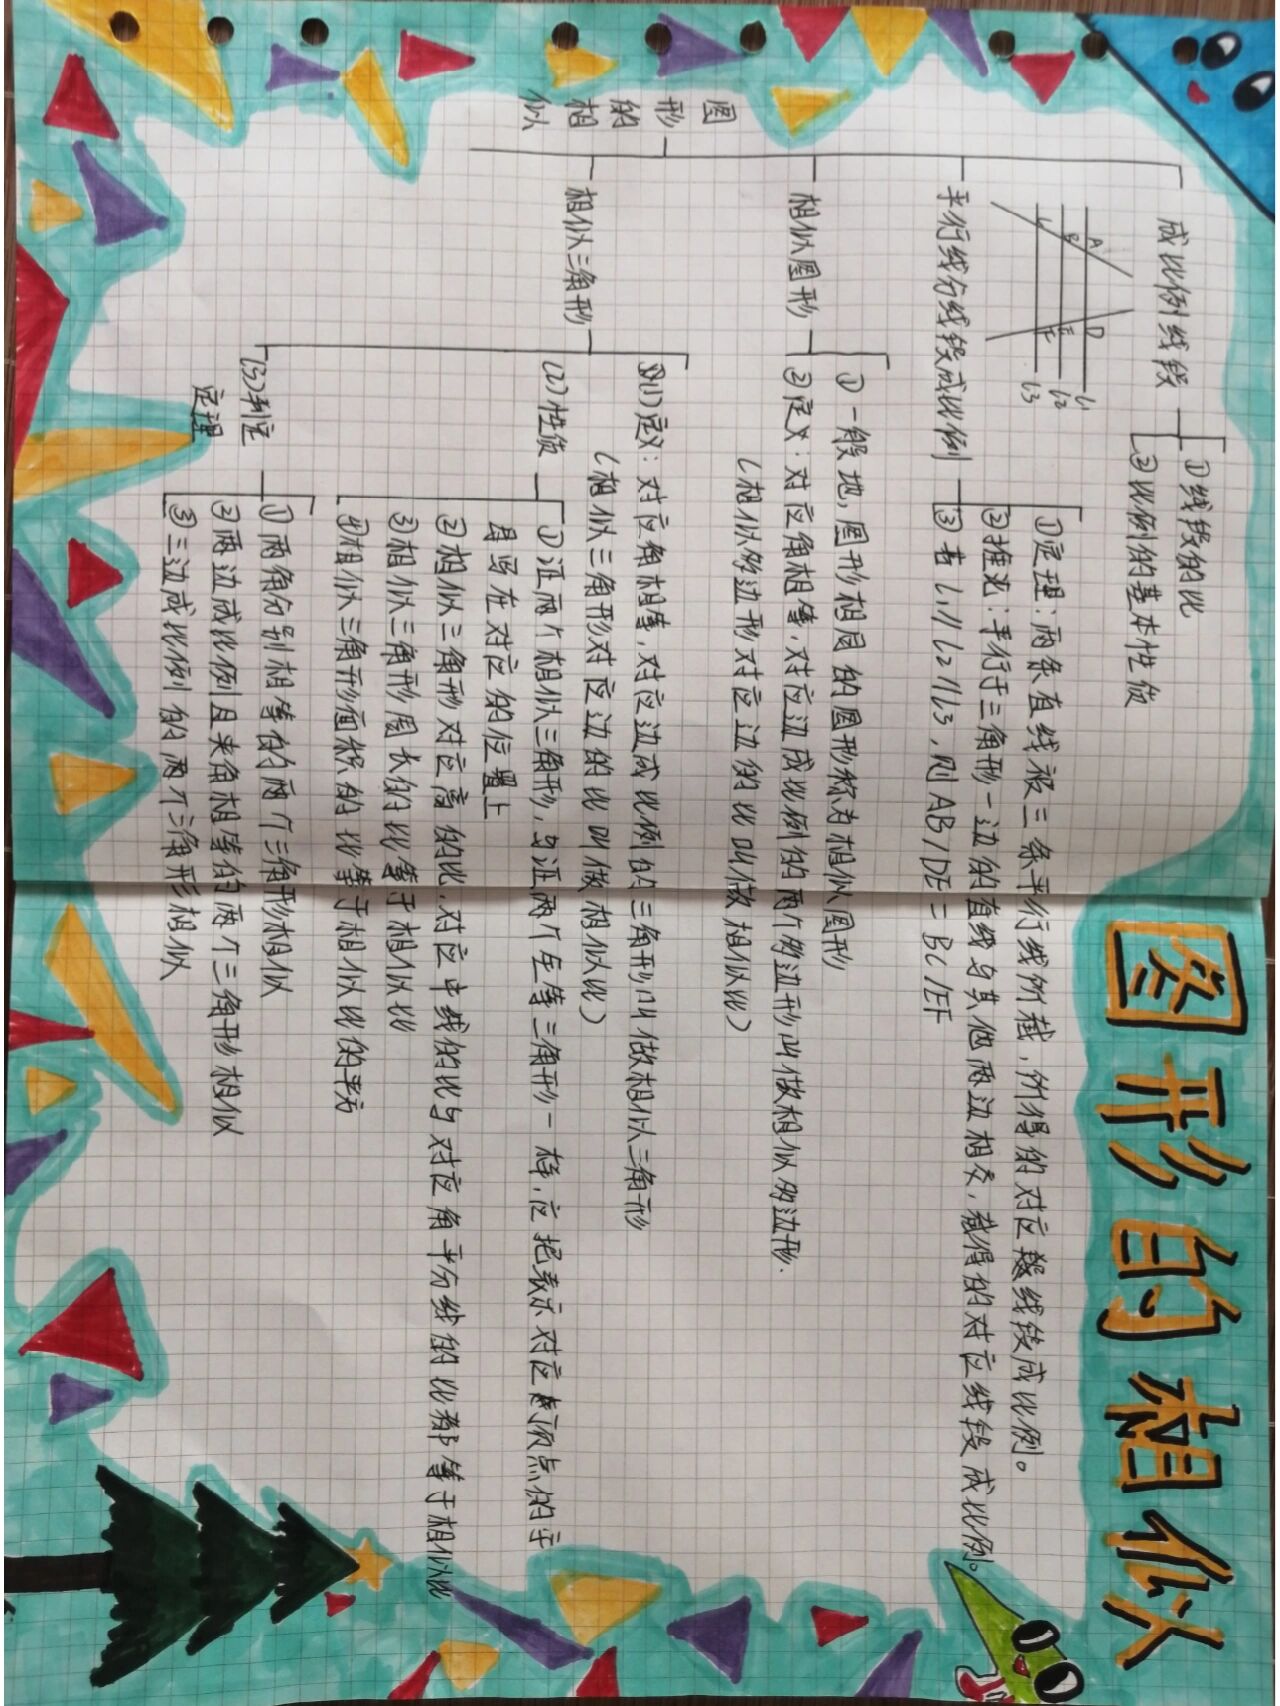 图形的相似
图形的相似
成比例线段
①线段的比
②比例的基本性质
A D l1
B E l2
F l3
平行线分线段成比例
①定理：两条直线被三条平行线所截，所得的对应线段成比例。
②推论：平行于三角形一边的直线与其他两边相交，截得的对应线段成比例。
③若l1//l2//l3，则AB/DE=BC/EF
相似图形
①一般地，图形相同的图形称为相似图形
②定义：对应角相等，对应边成比例的两个多边形叫做相似多边形.
(相似多边形对应边的比叫做相似比)
相似三角形
(1)定义：对应角相等，对应边成比例的三角形叫做相似三角形
(相似三角形对应边的比叫做相似比)
(2)性质
①证两个相似三角形，与证两个全等三角形一样，应把表示对应顶点的字
母写在对应的位置上
②相似三角形对应高的比，对应中线的比与对应角平分线的比都等于相似比
③相似三角形周长的比等于相似比
④相似三角形面积的比等于相似比的平方
(3)判定
定理
①两角分别相等的两个三角形相似
②两边成比例且夹角相等的两个三角形相似
③三边成比例的两个三角形相似